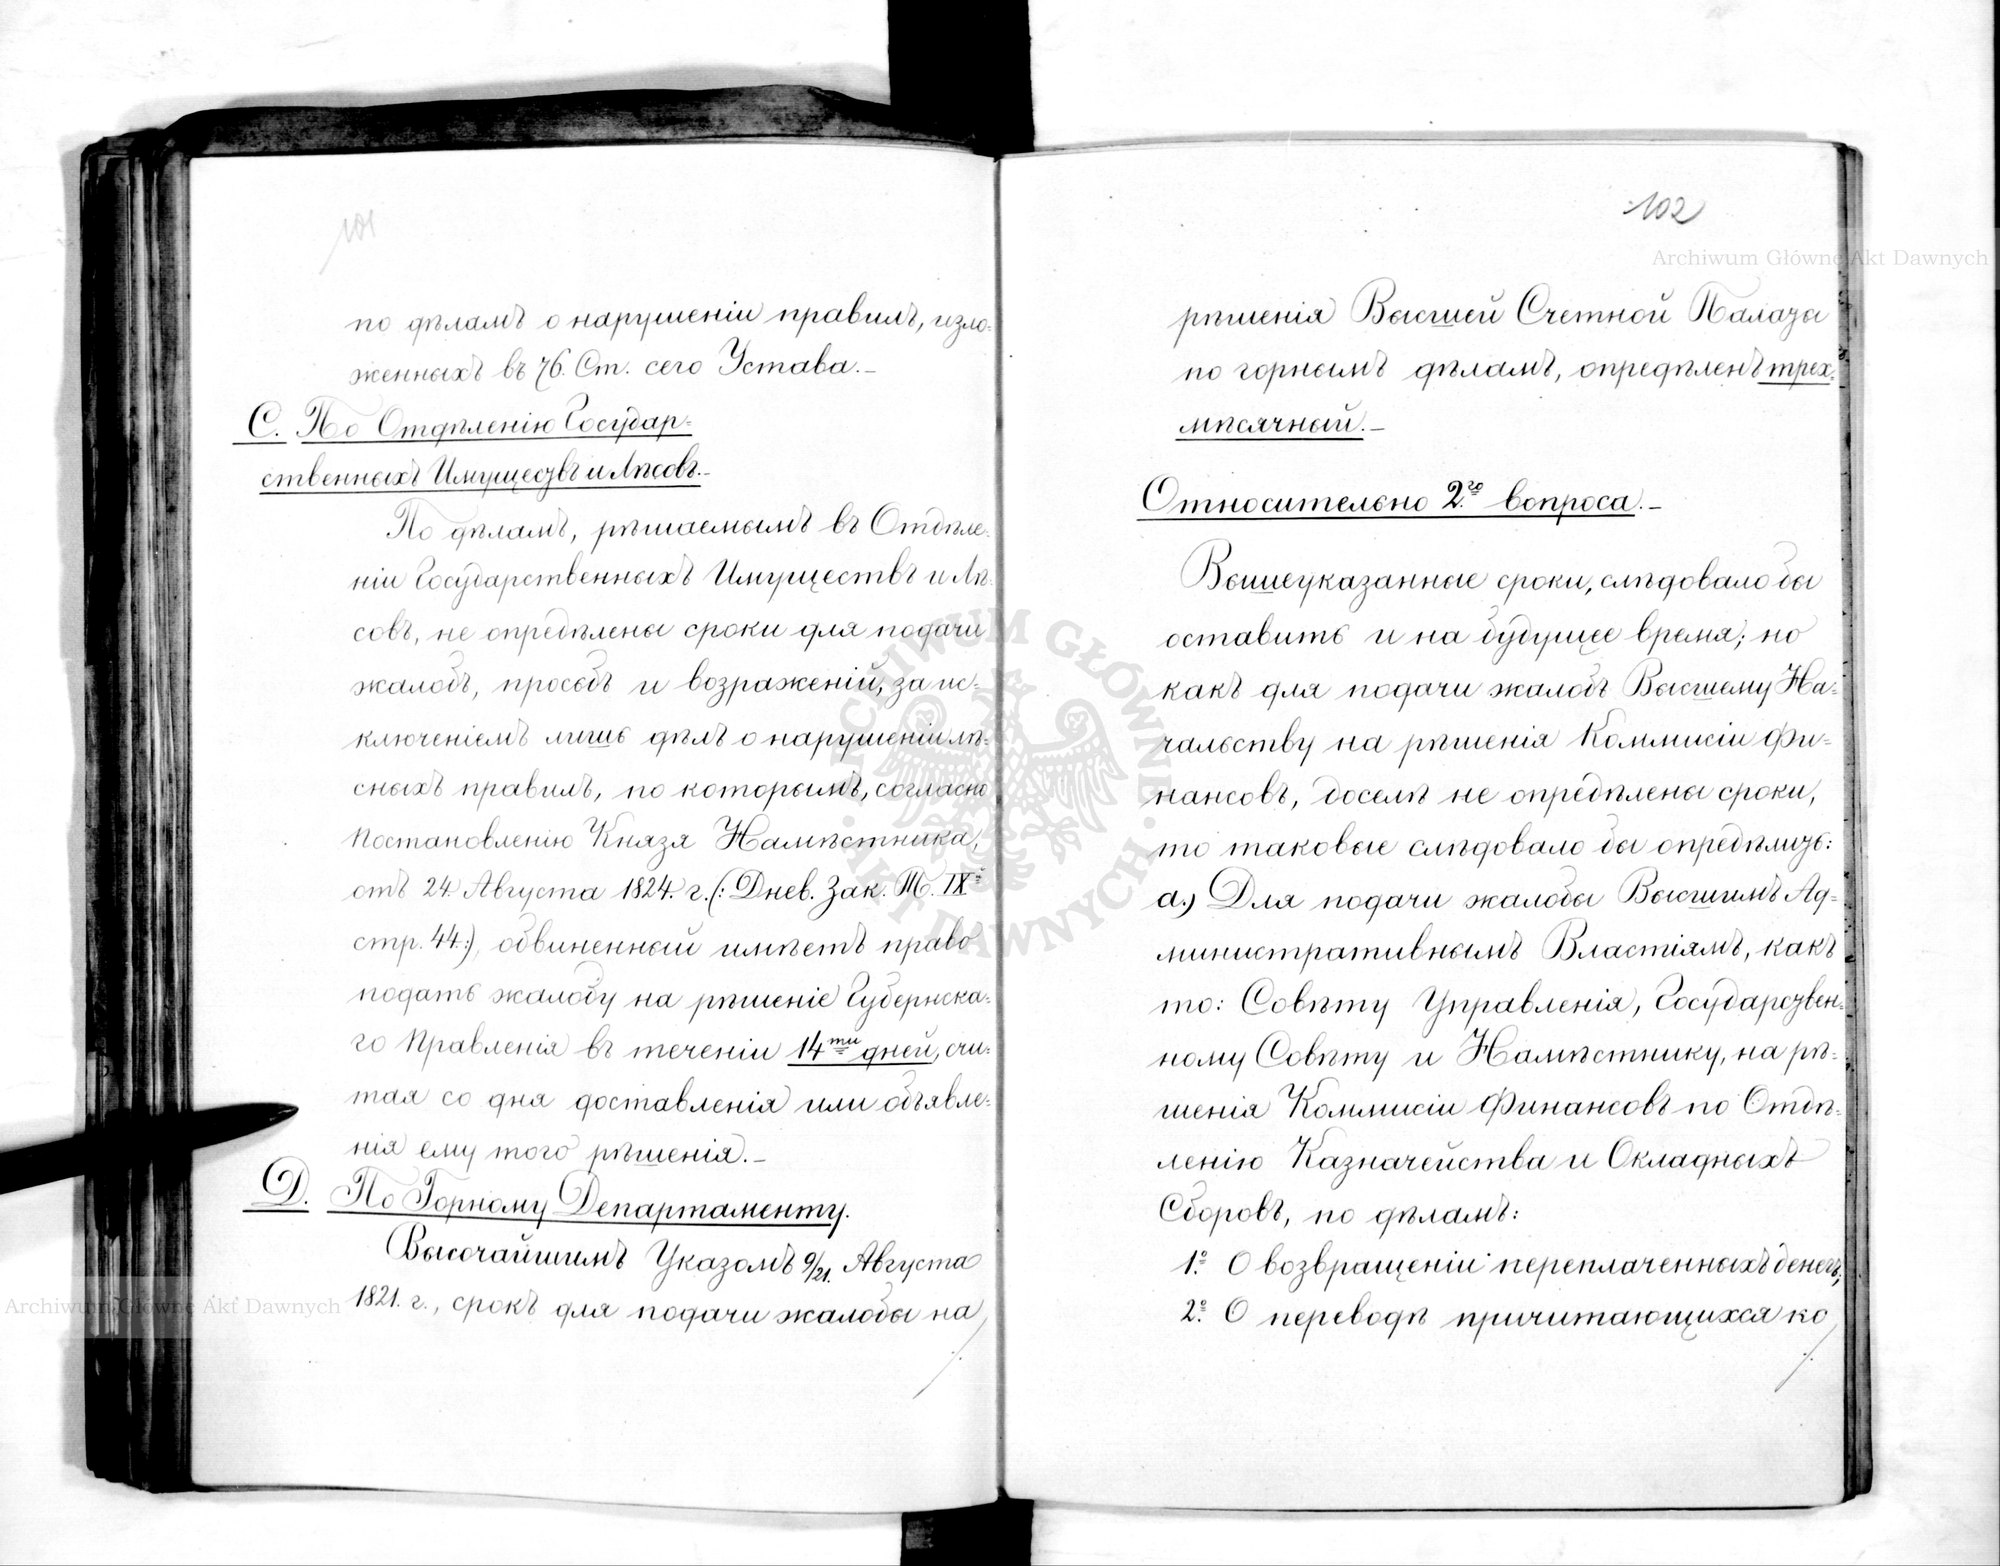 101
по дѣламъ о нарушеніи правилъ, изло-
женныхъ въ 76. Ст. сего Устава.—
C. По Отдѣленію Государ-
ственныхъ Имуществъ и Лѣсовъ.—
По дѣламъ, рѣшаемымъ въ Отдѣле-
ніи Государственныхъ Имуществъ и Лѣ-
совъ, не опредѣлены сроки для подачи
жалобъ, просьбъ и возраженій, за ис-
ключеніемъ лишь дѣлъ о нарушеніи лѣ-
сныхъ правилъ, по которымъ, согласно
Постановленію Князя Намѣстника,
отъ 24 Августа 1824. г. (: Днев. Зак. Т. IXй
стр. 44:), обвиненный имѣетъ право
подать жалобу на рѣшеніе Губернска-
го Правленія въ теченіи 14ти дней, счи-
тая со дня доставленія или объявле-
нія ему того рѣшенія.—
D. По Горному Департаменту.
Высочайшимъ Указомъ 9/21. Августа
1821. г., срокъ для подачи жалобы на
102
рѣшенія Высшей Счетной Палаты
по горнымъ дѣламъ, опредѣленъ трех-
мѣсячный.—
Относительно 2.го вопроса.—
Вышеуказанные сроки, слѣдовало бы
оставить и на будущее время; но
какъ для подачи жалобъ Высшему На-
чальству на рѣшенія Коммисіи Фи-
нансовъ, доселѣ не опредѣлены сроки,
то таковые слѣдовало бы опредѣлить:
а.) Для подачи жалобы Высшимъ Ад-
министративнымъ Властіямъ, какъ
то: Совѣту Управленія, Государствен-
ному Совѣту и Намѣстнику, на рѣ-
шенія Коммисіи Финансовъ по Отдѣ-
ленію Казначейства и Окладныхъ
Сборовъ, по дѣламъ:
1.º О возвращеніи переплаченныхъ денегъ;
2.º О переводѣ причитающихся ко
Archiwum Główne Akt Dawnych
Archiwum Główne Akt Dawnych
ARCHIWUM GŁÓWNE · AKT DAWNYCH ·